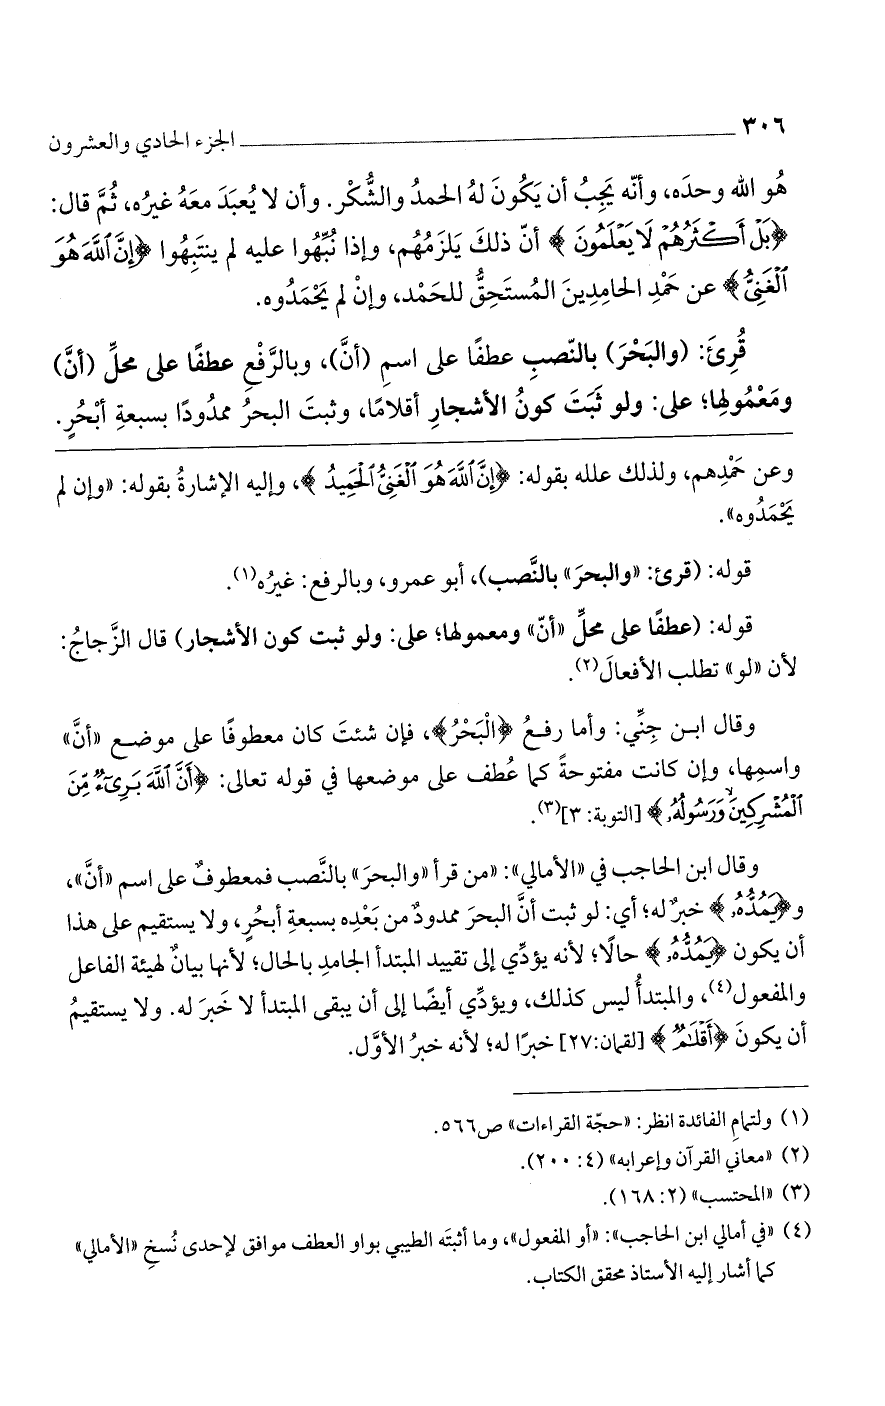 ٣٠٦ الجزء الحادي والعشرون
هُو الله وحدَه، وأنّه يَجِبُ أن يَكُونَ لهُ الحمدُ والشُّكْر. وأن لا يُعبَدَ معَهُ غيرُه، ثُمَّ قال:
﴿بَلْ أَكْثَرُهُمْ لَا يَعْلَمُونَ﴾ أنّ ذلكَ يَلزَمُهُم، وإذا نُبِّهُوا عليه لم ينتَبِهُوا ﴿إِنَّ ٱللَّهَ هُوَ
ٱلْغَنِىُّ﴾ عن حَمْدِ الحامِدِينَ المُستَحِقُّ للحَمْد، وإنْ لم يَحْمَدُوه.
قُرِئَ: (والبَحْرَ) بالنّصبِ عطفًا على اسمِ (أنَّ)، وبالرَّفْعِ عطفًا على محلِّ (أنَّ)
ومَعْمُولِها؛ على: ولو ثَبَتَ كونُ الأشجارِ أقلامًا، وثبتَ البحرُ ممدُودًا بسبعةِ أبْحُرٍ.
وعن حَمْدِهم، ولذلك علله بقوله: ﴿إِنَّ ٱللَّهَ هُوَ ٱلْغَنِىُّ ٱلْحَمِيدُ﴾، وإليه الإشارةُ بقوله: «وإن لم
يَحْمَدُوه».
قوله: (قرئ: «والبحرَ» بالنَّصب)، أبو عمرو، وبالرفع: غيرُه(١).
قوله: (عطفًا على محلِّ «أنّ» ومعمولها؛ على: ولو ثبت كون الأشجار) قال الزَّجاجُ:
لأن «لو» تطلب الأفعالَ(٢).
وقال ابن جِنِّي: وأما رفعُ ﴿الْبَحْرُ﴾، فإن شئتَ كان معطوفًا على موضع «أنَّ»
واسمِها، وإن كانت مفتوحةً كما عُطف على موضعها في قوله تعالى: ﴿أَنَّ ٱللَّهَ بَرِىٓءٌ مِّنَ
ٱلْمُشْرِكِينَ وَرَسُولُهُۥ﴾ [التوبة: ٣](٣).
وقال ابن الحاجب في «الأمالي»: «من قرأ «والبحرَ» بالنَّصب فمعطوفٌ على اسم «أنَّ»،
و﴿يَمُدُّهُۥ﴾ خبرٌ له؛ أي: لو ثبت أنَّ البحرَ ممدودٌ من بَعْدِه بسبعةِ أبحُرٍ، ولا يستقيم على هذا
أن يكون ﴿يَمُدُّهُۥ﴾ حالًا؛ لأنه يؤدِّي إلى تقييد المبتدأ الجامدِ بالحال؛ لأنها بيانٌ لهيئة الفاعل
والمفعول(٤)، والمبتدأُ ليس كذلك، ويؤدِّي أيضًا إلى أن يبقى المبتدأ لا خَبرَ له. ولا يستقيمُ
أن يكونَ ﴿أَقْلَٰمٌ﴾ [لقمان:٢٧] خبرًا له؛ لأنه خبرُ الأوَّل.
(١) ولتمامِ الفائدة انظر: «حجّة القراءات» ص٥٦٦.
(٢) «معاني القرآن وإعرابه» (٤: ٢٠٠).
(٣) «المحتسب» (٢: ١٦٨).
(٤) «في أمالي ابن الحاجب»: «أو المفعول»، وما أثبتَه الطيبي بواو العطف موافق لإحدى نُسخِ «الأمالي»
كما أشار إليه الأستاذ محقق الكتاب.